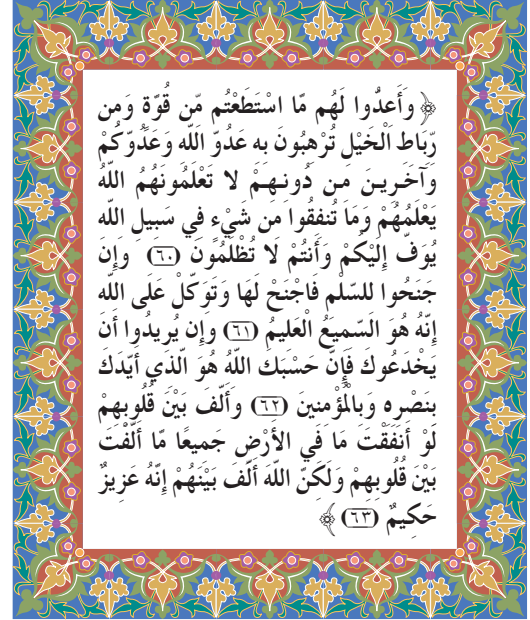 ﴿ وَأَعِدُّوا لَهُم مَّا اسْتَطَعْتُم مِّن قُوَّةٍ وَمِن
رِّبَاطِ الْخَيْلِ تُرْهِبُونَ بِهِ عَدُوَّ اللَّهِ وَعَدُوَّكُمْ
وَآخَرِينَ مِن دُونِهِمْ لا تَعْلَمُونَهُمُ اللَّهُ
يَعْلَمُهُمْ وَمَا تُنفِقُوا مِن شَيْءٍ فِي سَبِيلِ اللَّهِ
يُوَفَّ إِلَيْكُمْ وَأَنتُمْ لا تُظْلَمُونَ (٦٠) وَإِن
جَنَحُوا لِلسَّلْمِ فَاجْنَحْ لَهَا وَتَوَكَّلْ عَلَى اللَّهِ
إِنَّهُ هُوَ السَّمِيعُ الْعَلِيمُ (٦١) وَإِن يُرِيدُوا أَن
يَخْدَعُوكَ فَإِنَّ حَسْبَكَ اللَّهُ هُوَ الَّذِي أَيَّدَكَ
بِنَصْرِهِ وَبِالْمُؤْمِنِينَ (٦٢) وَأَلَّفَ بَيْنَ قُلُوبِهِمْ
لَوْ أَنفَقْتَ مَا فِي الأَرْضِ جَمِيعًا مَّا أَلَّفْتَ
بَيْنَ قُلُوبِهِمْ وَلَكِنَّ اللَّهَ أَلَّفَ بَيْنَهُمْ إِنَّهُ عَزِيزٌ
حَكِيمٌ (٦٣) ﴾